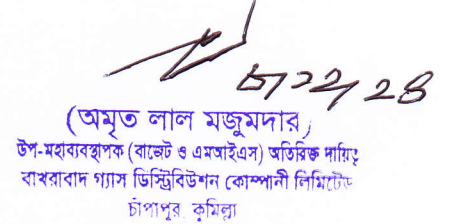 ৮/১২/২৪
(অমৃত লাল মজুমদার)
উপ-মহাব্যবস্থাপক (বাজেট ও এমআইএস) অতিরিক্ত দায়িত্ব
বাখরাবাদ গ্যাস ডিস্ট্রিবিউশন কোম্পানী লিমিটেড
চাঁপাপুর কুমিল্লা